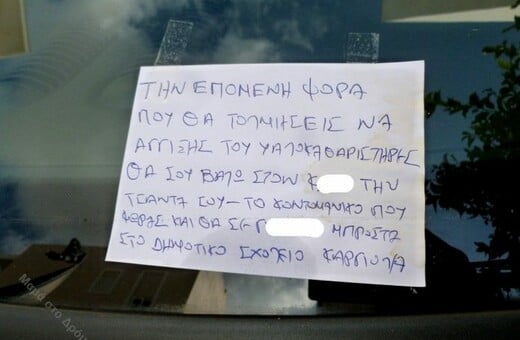 ΤΗΝ ΕΠΟΜΕΝΗ ΦΟΡΑ
ΠΟΥ ΘΑ ΤΟΛΜΗΣΕΙΣ ΝΑ
ΑΓΓΙΣΗΣ ΤΟΥ ΥΑΛΟΚΑΘΑΡΙΣΤΗΡΕΣ
ΘΑ ΣΟΥ ΒΑΛΩ ΣΤΟΝ Κ ΤΗΝ
ΤΣΑΝΤΑ ΣΟΥ - ΤΟ ΚΟΝΤΟΜΑΝΙΚΟ ΠΟΥ
ΦΟΡΑΣ ΚΑΙ ΘΑ ΣΕ Γ ΜΠΡΟΣΤΑ
ΣΤΟ ΔΗΜΟΤΙΚΟ ΣΧΟΛΕΙΟ
Μαρία στο Δρόμ